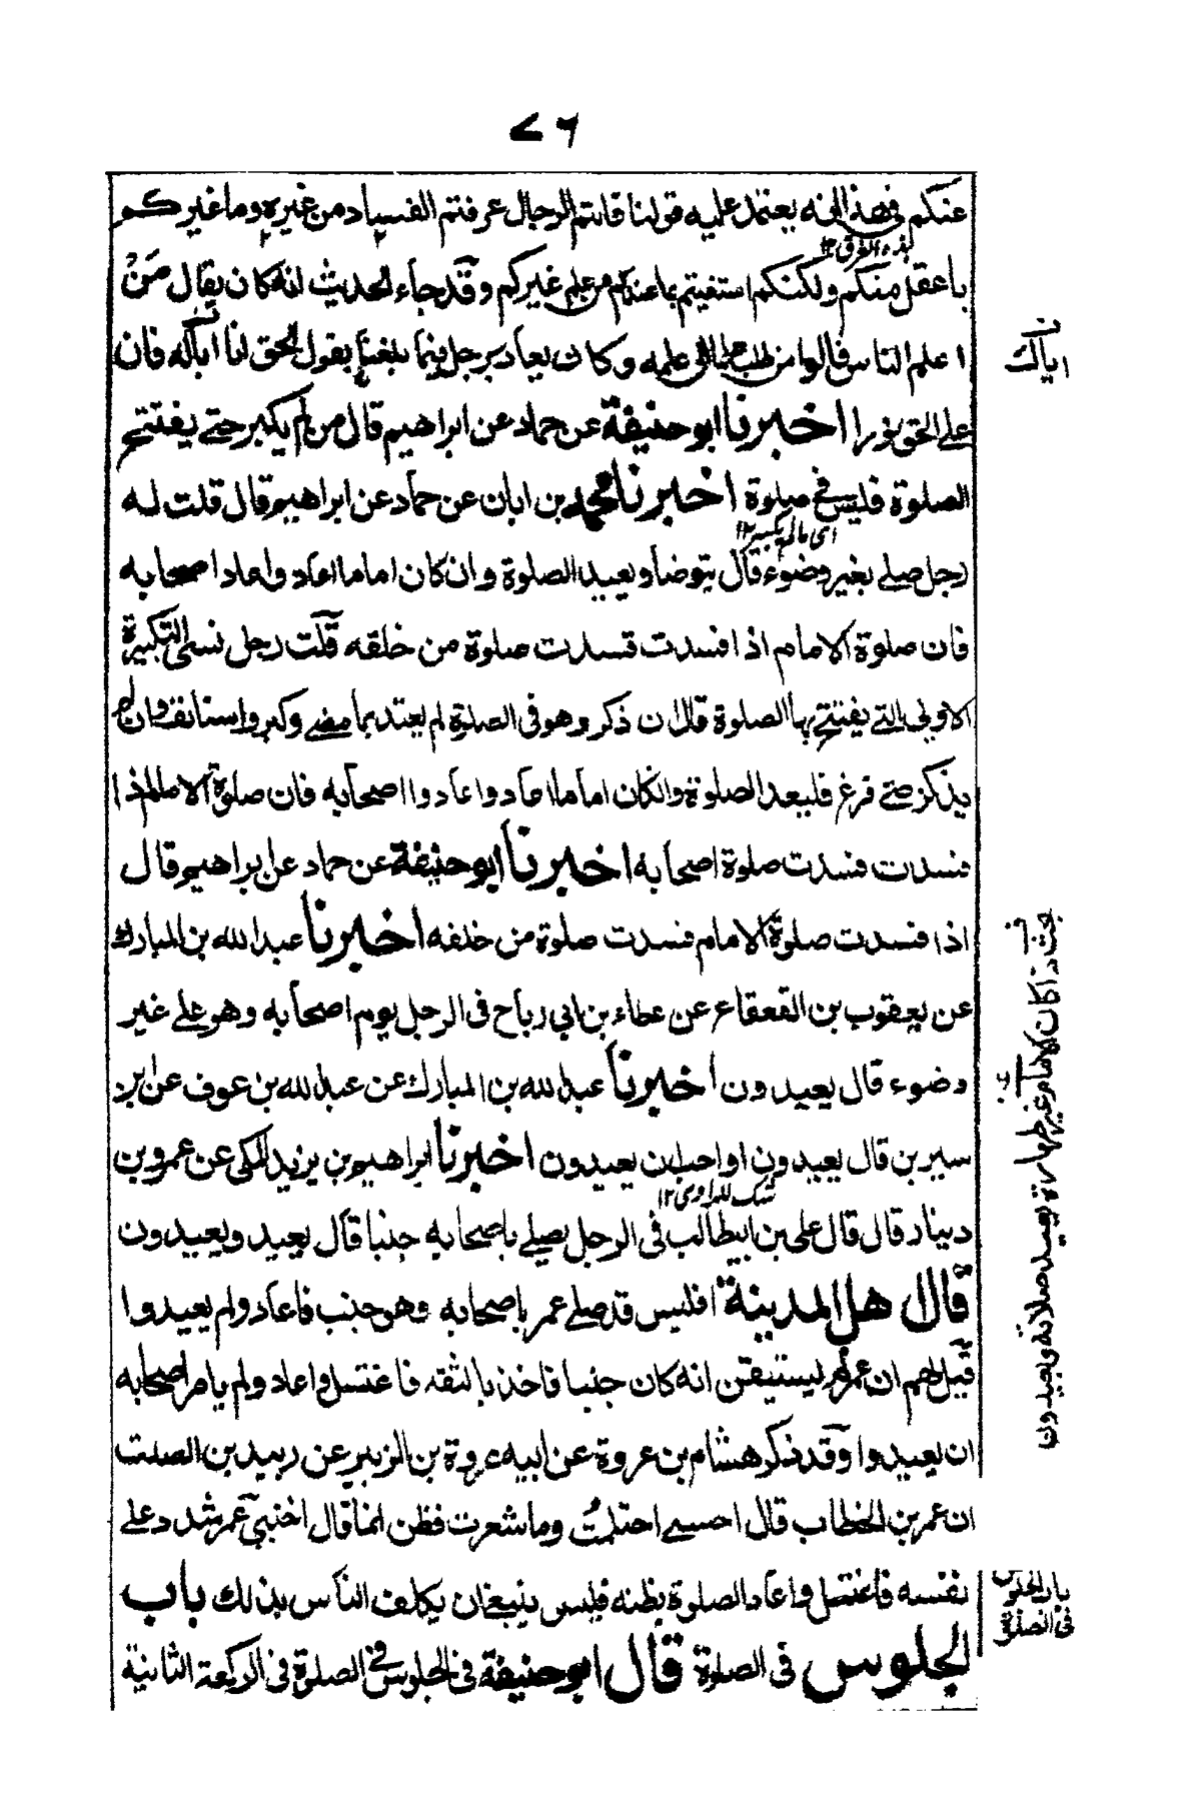 ٧٦
عنكم في هذا انه يعتمد عليه قولنا فانتم الرجال عرفتم الفساد من غيره وما غيركم
لهذه الفرق ١٢
باعقل منكم ولكنكم استغنيتم بما عندكم من علم غيركم وقد جاء الحديث انه كان يقال من
اعلم الناس قالوا من طلب علما الى علمه وكان يعاد برجل فيما بلغنا يقول الحق لنا اباكه فان
على الحق نورا اخبرنا ابو حنيفة عن حماد عن ابراهيم قال من لم يكبر حتى يفتتح
الصلوة فليس في صلوة اخبرنا محمد بن ابان عن حماد عن ابراهيم قال قلت له
اى مالم يكبر ١٢
رجل صلى بغير وضوء قال يتوضأ ويعيد الصلوة وان كان اماما اعاد واعاد اصحابه
فان صلوة الامام اذا فسدت فسدت صلوة من خلفه قلت رجل نسى التكبيرة
الاولى التى يفتتح بها الصلوة قال ان ذكر وهو فى الصلوة لم يعتد بما مضى وكبر واستانف وان لم
يذكر حتى فرغ فليعد الصلوة وانكان اماما اعاد واعادوا اصحابه فان صلوة الامام اذا
فسدت فسدت صلوة اصحابه اخبرنا ابو حنيفة عن حماد عن ابراهيم قال
اذا فسدت صلوة الامام فسدت صلوة من خلفه اخبرنا عبد الله بن المبارك
عن يعقوب بن القعقاع عن عطاء بن ابي رباح فى الرجل يوم اصحابه وهو على غير
وضوء قال يعيدون اخبرنا عبد الله بن المبارك عن عبد الله بن عوف عن ابن
سيرين قال يعيدون او احب ان يعيدون اخبرنا ابراهيم بن يزيد المكى عن عمرو بن
شك للراوى ١٢
دينار قال قال على بن ابيطالب فى الرجل يصلى باصحابه جنبا قال يعيد ويعيدون
قال اهل المدينة افليس قد صلى عمر باصحابه وهو جنب فاعاد ولم يعيدوا
قيل لهم ان عمر لم يستيقن انه كان جنبا فاخذ بالثقه فاغتسل واعاد ولم يامر اصحابه
ان يعيدوا وقد ذكر هشام بن عروة عن ابيه عروة بن الزبير عن زبيد بن الصلت
ان عمر بن الخطاب قال احسبى احتلمت وما شعرت فظن انما قال احسبنى عمر شدد على
نفسه فاغتسل واعاد الصلوة بظنه فليس ينبغى ان يكلف الناس بذلك باب
الجلوس فى الصلوة قال ابو حنيفة فى الجلوس فى الصلوة فى الركعة الثانية
اياك
بحث اذا كان الامام غير طهارة يعيد صلاته ويعيدون
باب الجلوس
فى الصلوة